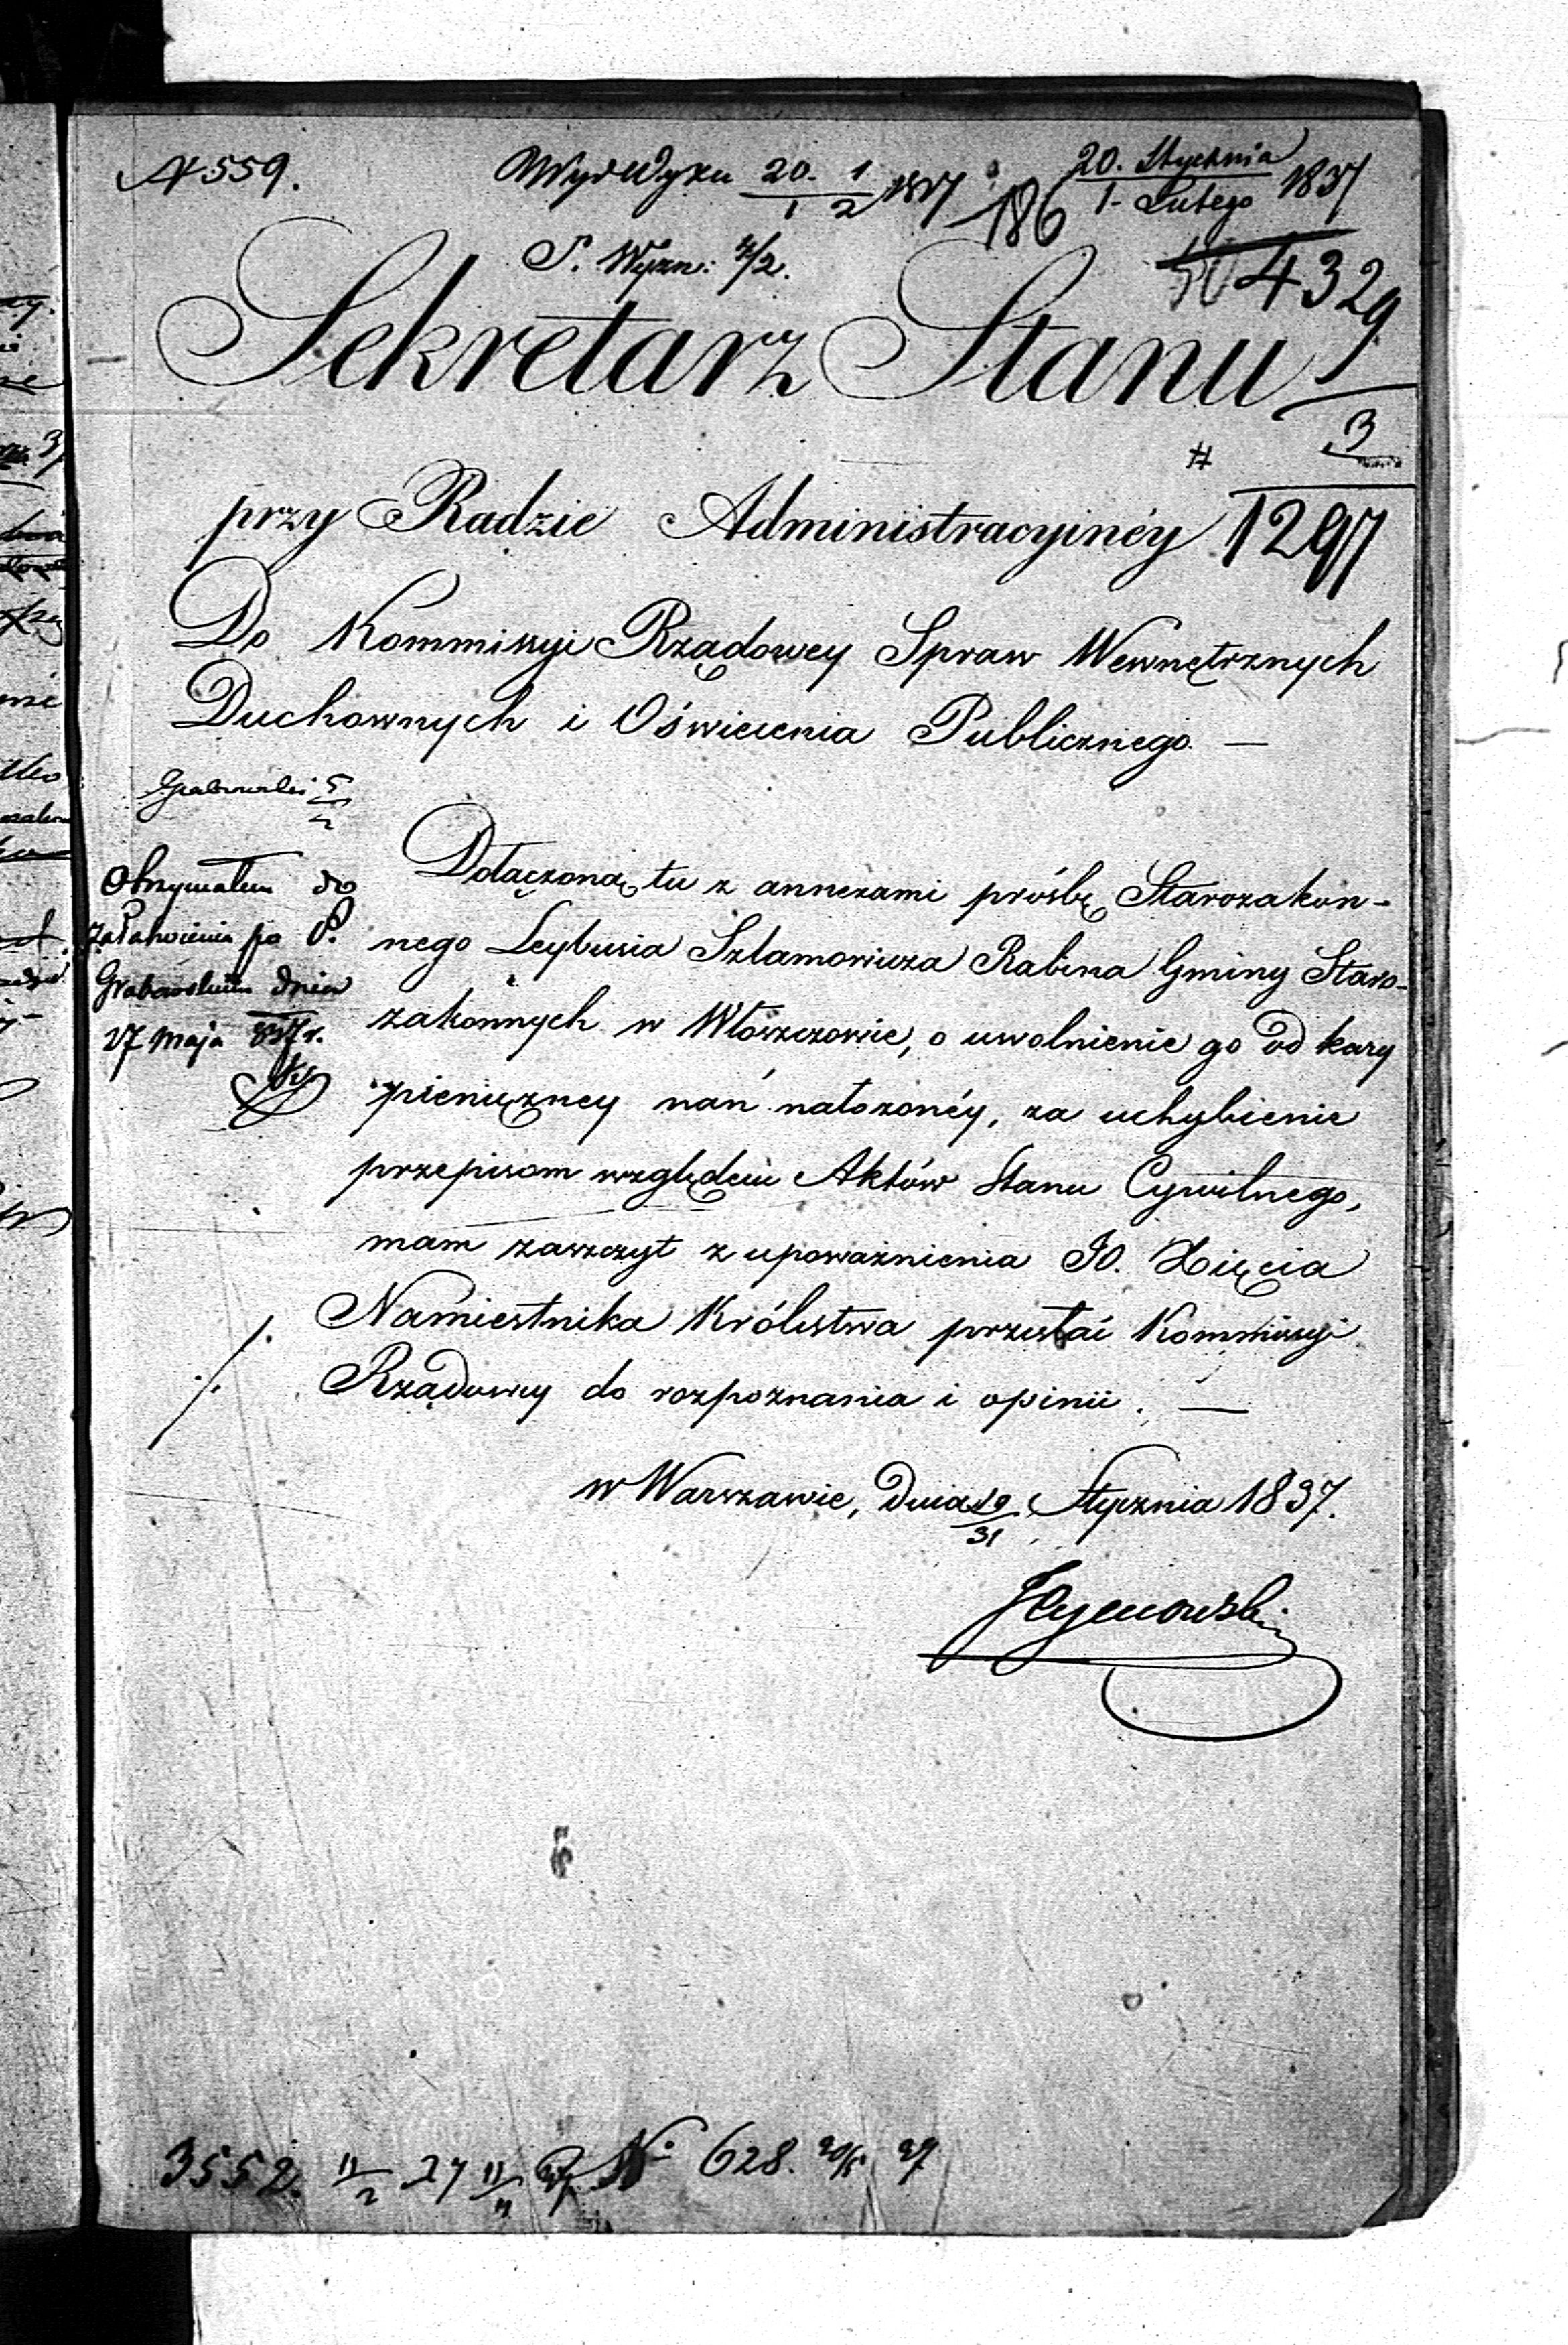 N 559.
Wyd Wyzn 20. 1 / 1 2 1837
20. Stycznia / 1. Lutego 1837
186
S. Wyzn: 4/2.
4329
Sekretarz Stanu
3
przy Radzie Administracyinéy
1297
Do Kommissyi Rządowey Spraw Wewnętrznych
Duchownych i Oświecenia Publicznego. —
Grabowski 5/2
Otrzymałem do
załatwienia po P.
Grabowskim dnia
27 Maja 837 r.
Dołączoną tu z annexami prośbę Starozakon-
nego Leybusia Szlamowicza Rabina Gminy Staro-
zakonnych w Włoszczowie, o uwolnienie go od kary
pieniężney nań nałożonéy, za uchybienie
przepisom względem Aktów Stanu Cywilnego,
mam zaszczyt z upoważnienia JO. Xięcia
Namiestnika Królestwa przesłać Kommissyi
Rządowey do rozpoznania i opinii. —
w Warszawie, dnia 19/31 Stycznia 1837.
3552. 11/2 37 No 628. 20/5 37